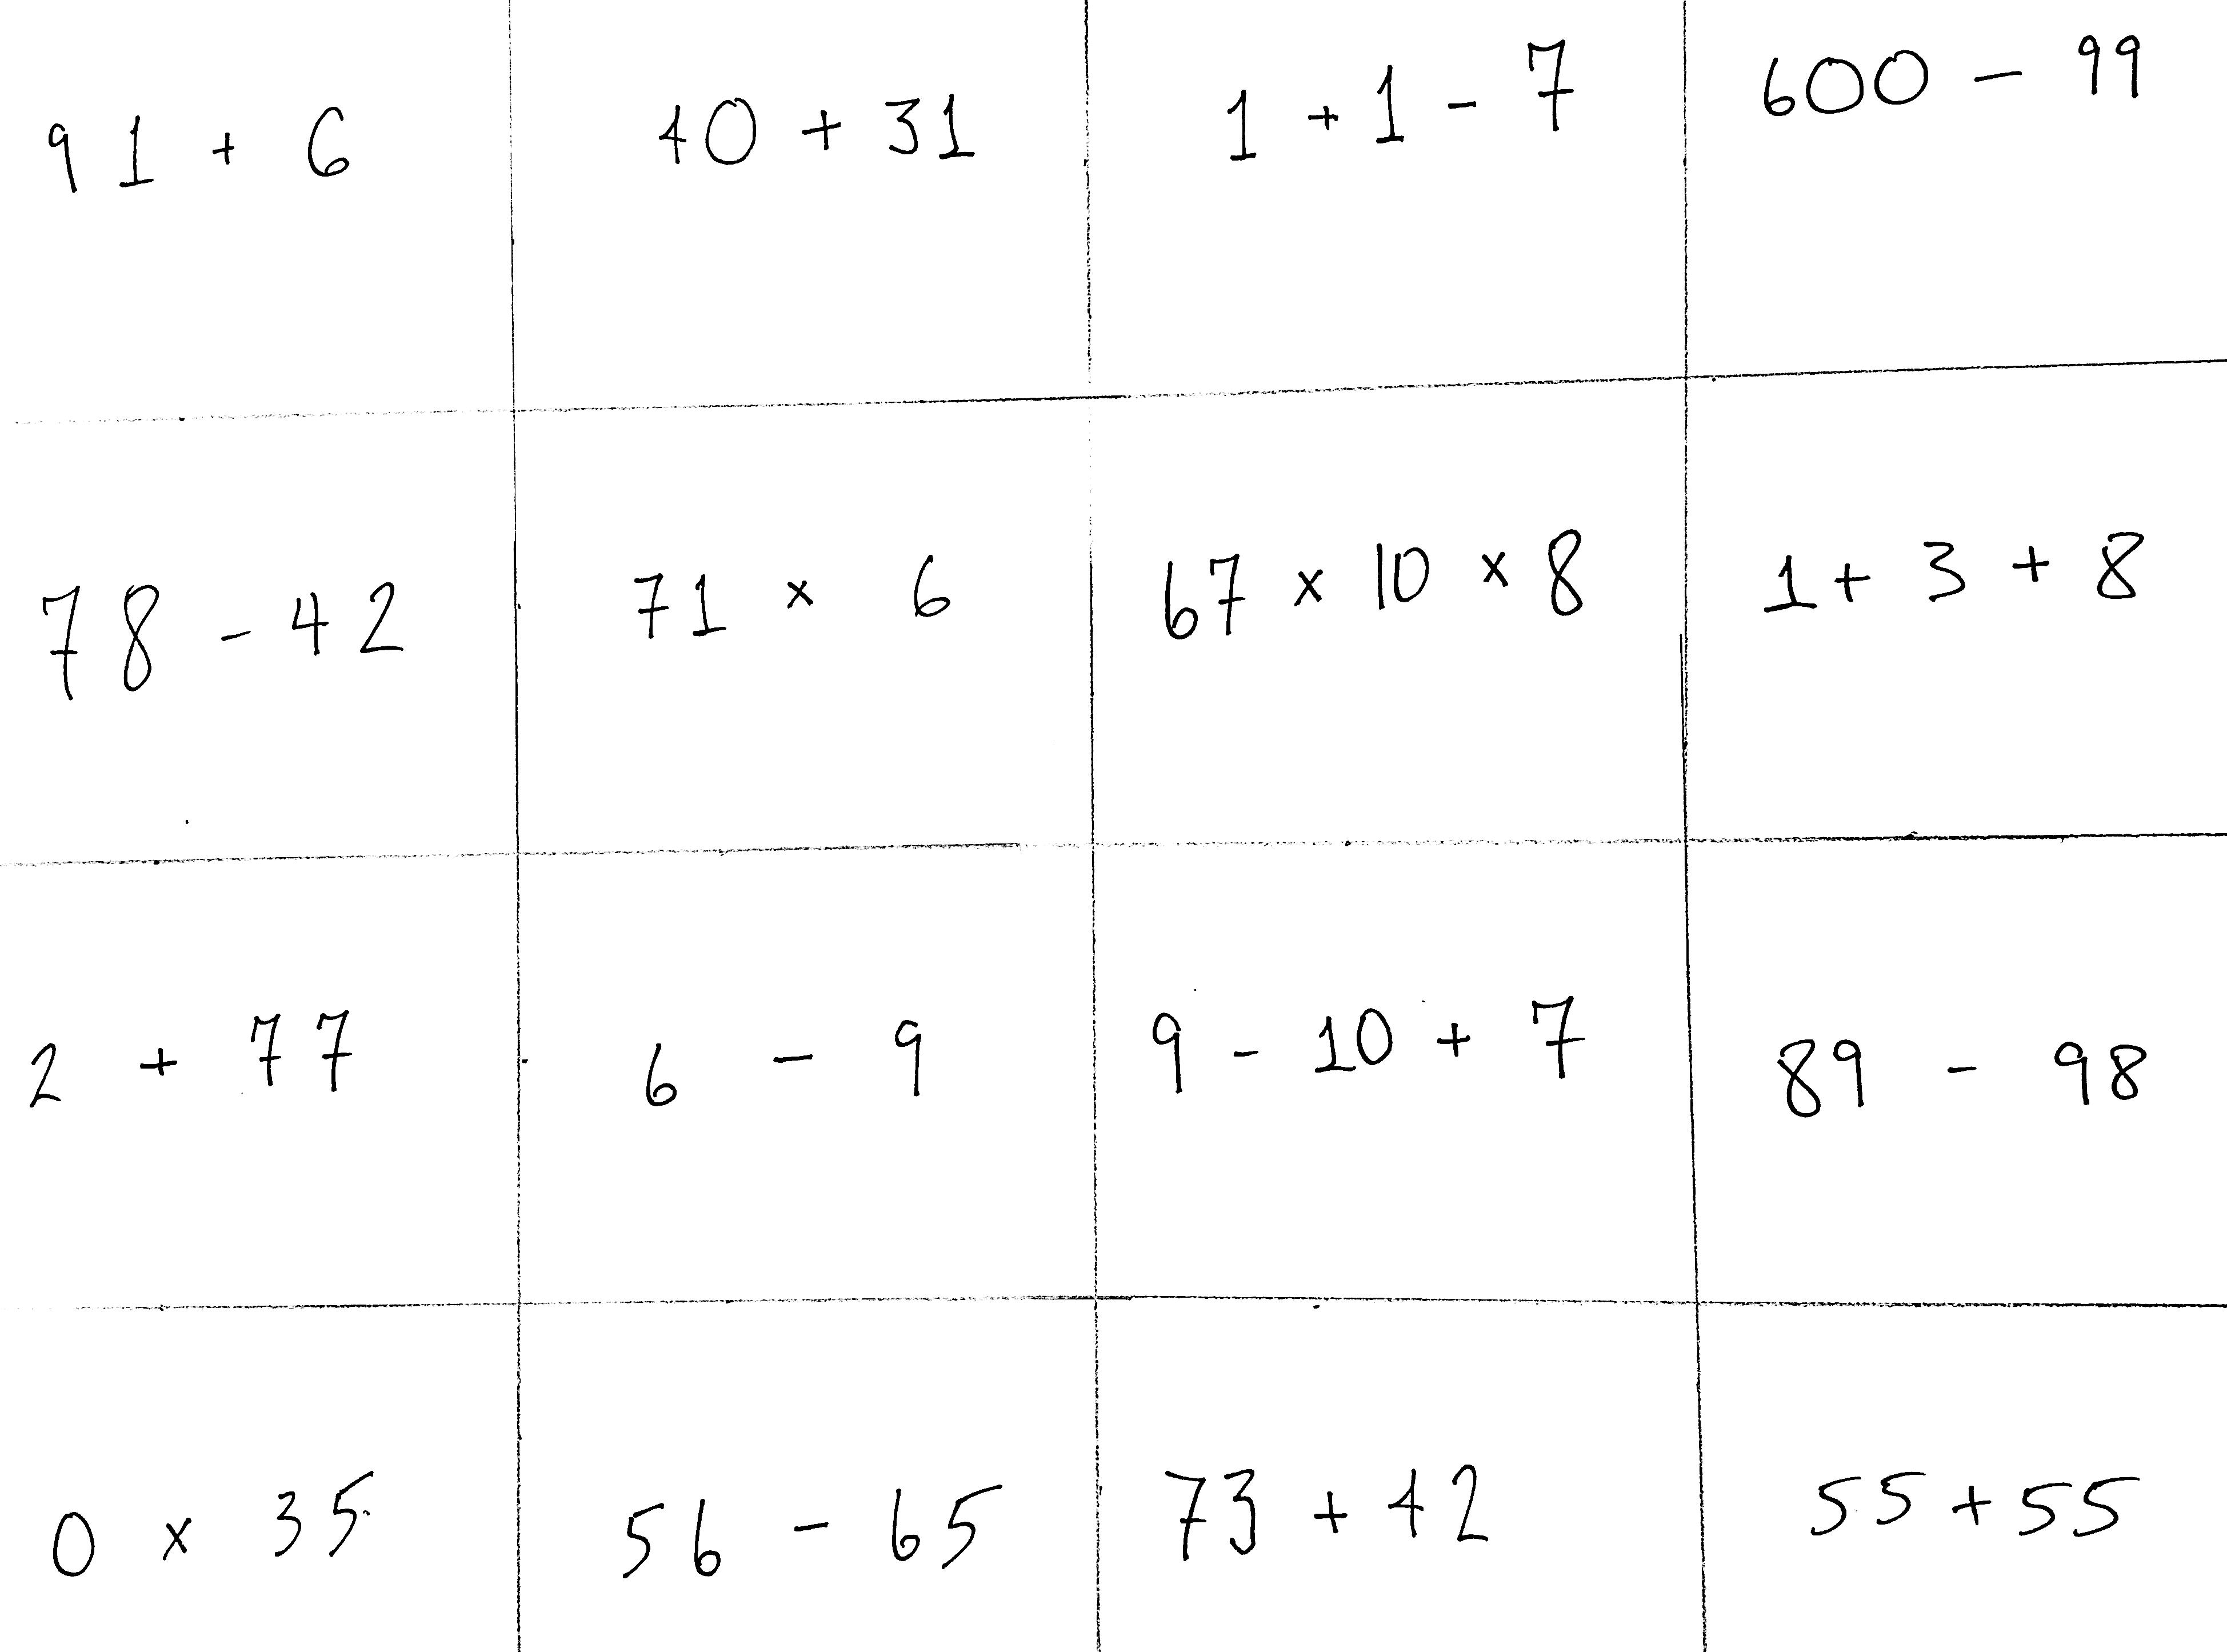 91 + 6
40 + 31
1 + 1 - 7
600 - 99
78 - 42
71 x 6
67 x 10 x 8
1 + 3 + 8
2 + 77
6 - 9
9 - 10 + 7
89 - 98
0 x 35
56 - 65
73 + 42
55 + 55